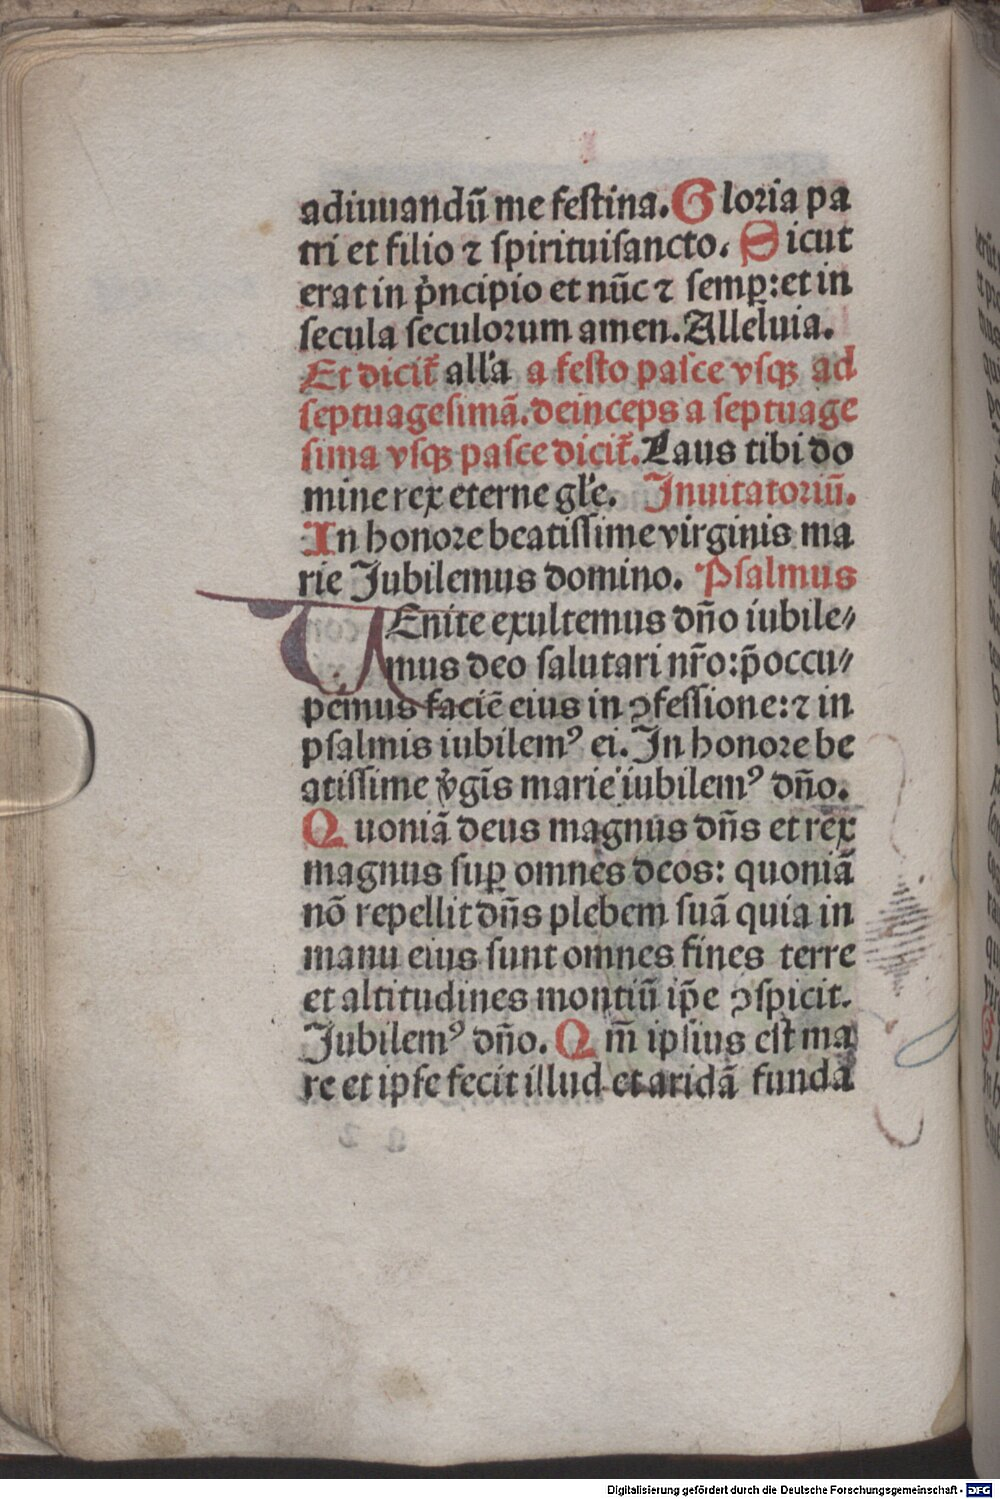 adiuuandū me festina. Gloria pa
tri et filio ⁊ spirituisancto. Sicut
erat in p̍ncipio et nūc ⁊ semꝑ: et in
secula seculorum amen. Alleluia.
Et dicit̄ all'a a festo pasce vsqꝫ ad
septuagesimā. deinceps a septuage
sima vsqꝫ pasce dicit̄. Laus tibi do
mine rex eterne gl'e. Inuitatoriū.
In honore beatissime virginis ma
rie Jubilemus domino. Psalmus
VEnite exultemus dño iubile⸗
mus deo salutari nr̄o: p̄occu⸗
pemus faciē eius in ꝯfessione: ⁊ in
psalmis iubilemꝰ ei. In honore be
atissime v̍gīs marie iubilemꝰ dño.
Quoniā deus magnus dñs et rex
magnus suꝑ omnes deos: quoniā
nō repellit dñs plebem suā quia in
manu eius sunt omnes fines terre
et altitudines montiū ip̄e ꝯspicit.
Jubilemꝰ dño. Qm̄ ipsius est ma
re et ipse fecit illud et aridā funda
Digitalisierung gefördert durch die Deutsche Forschungsgemeinschaft - DFG